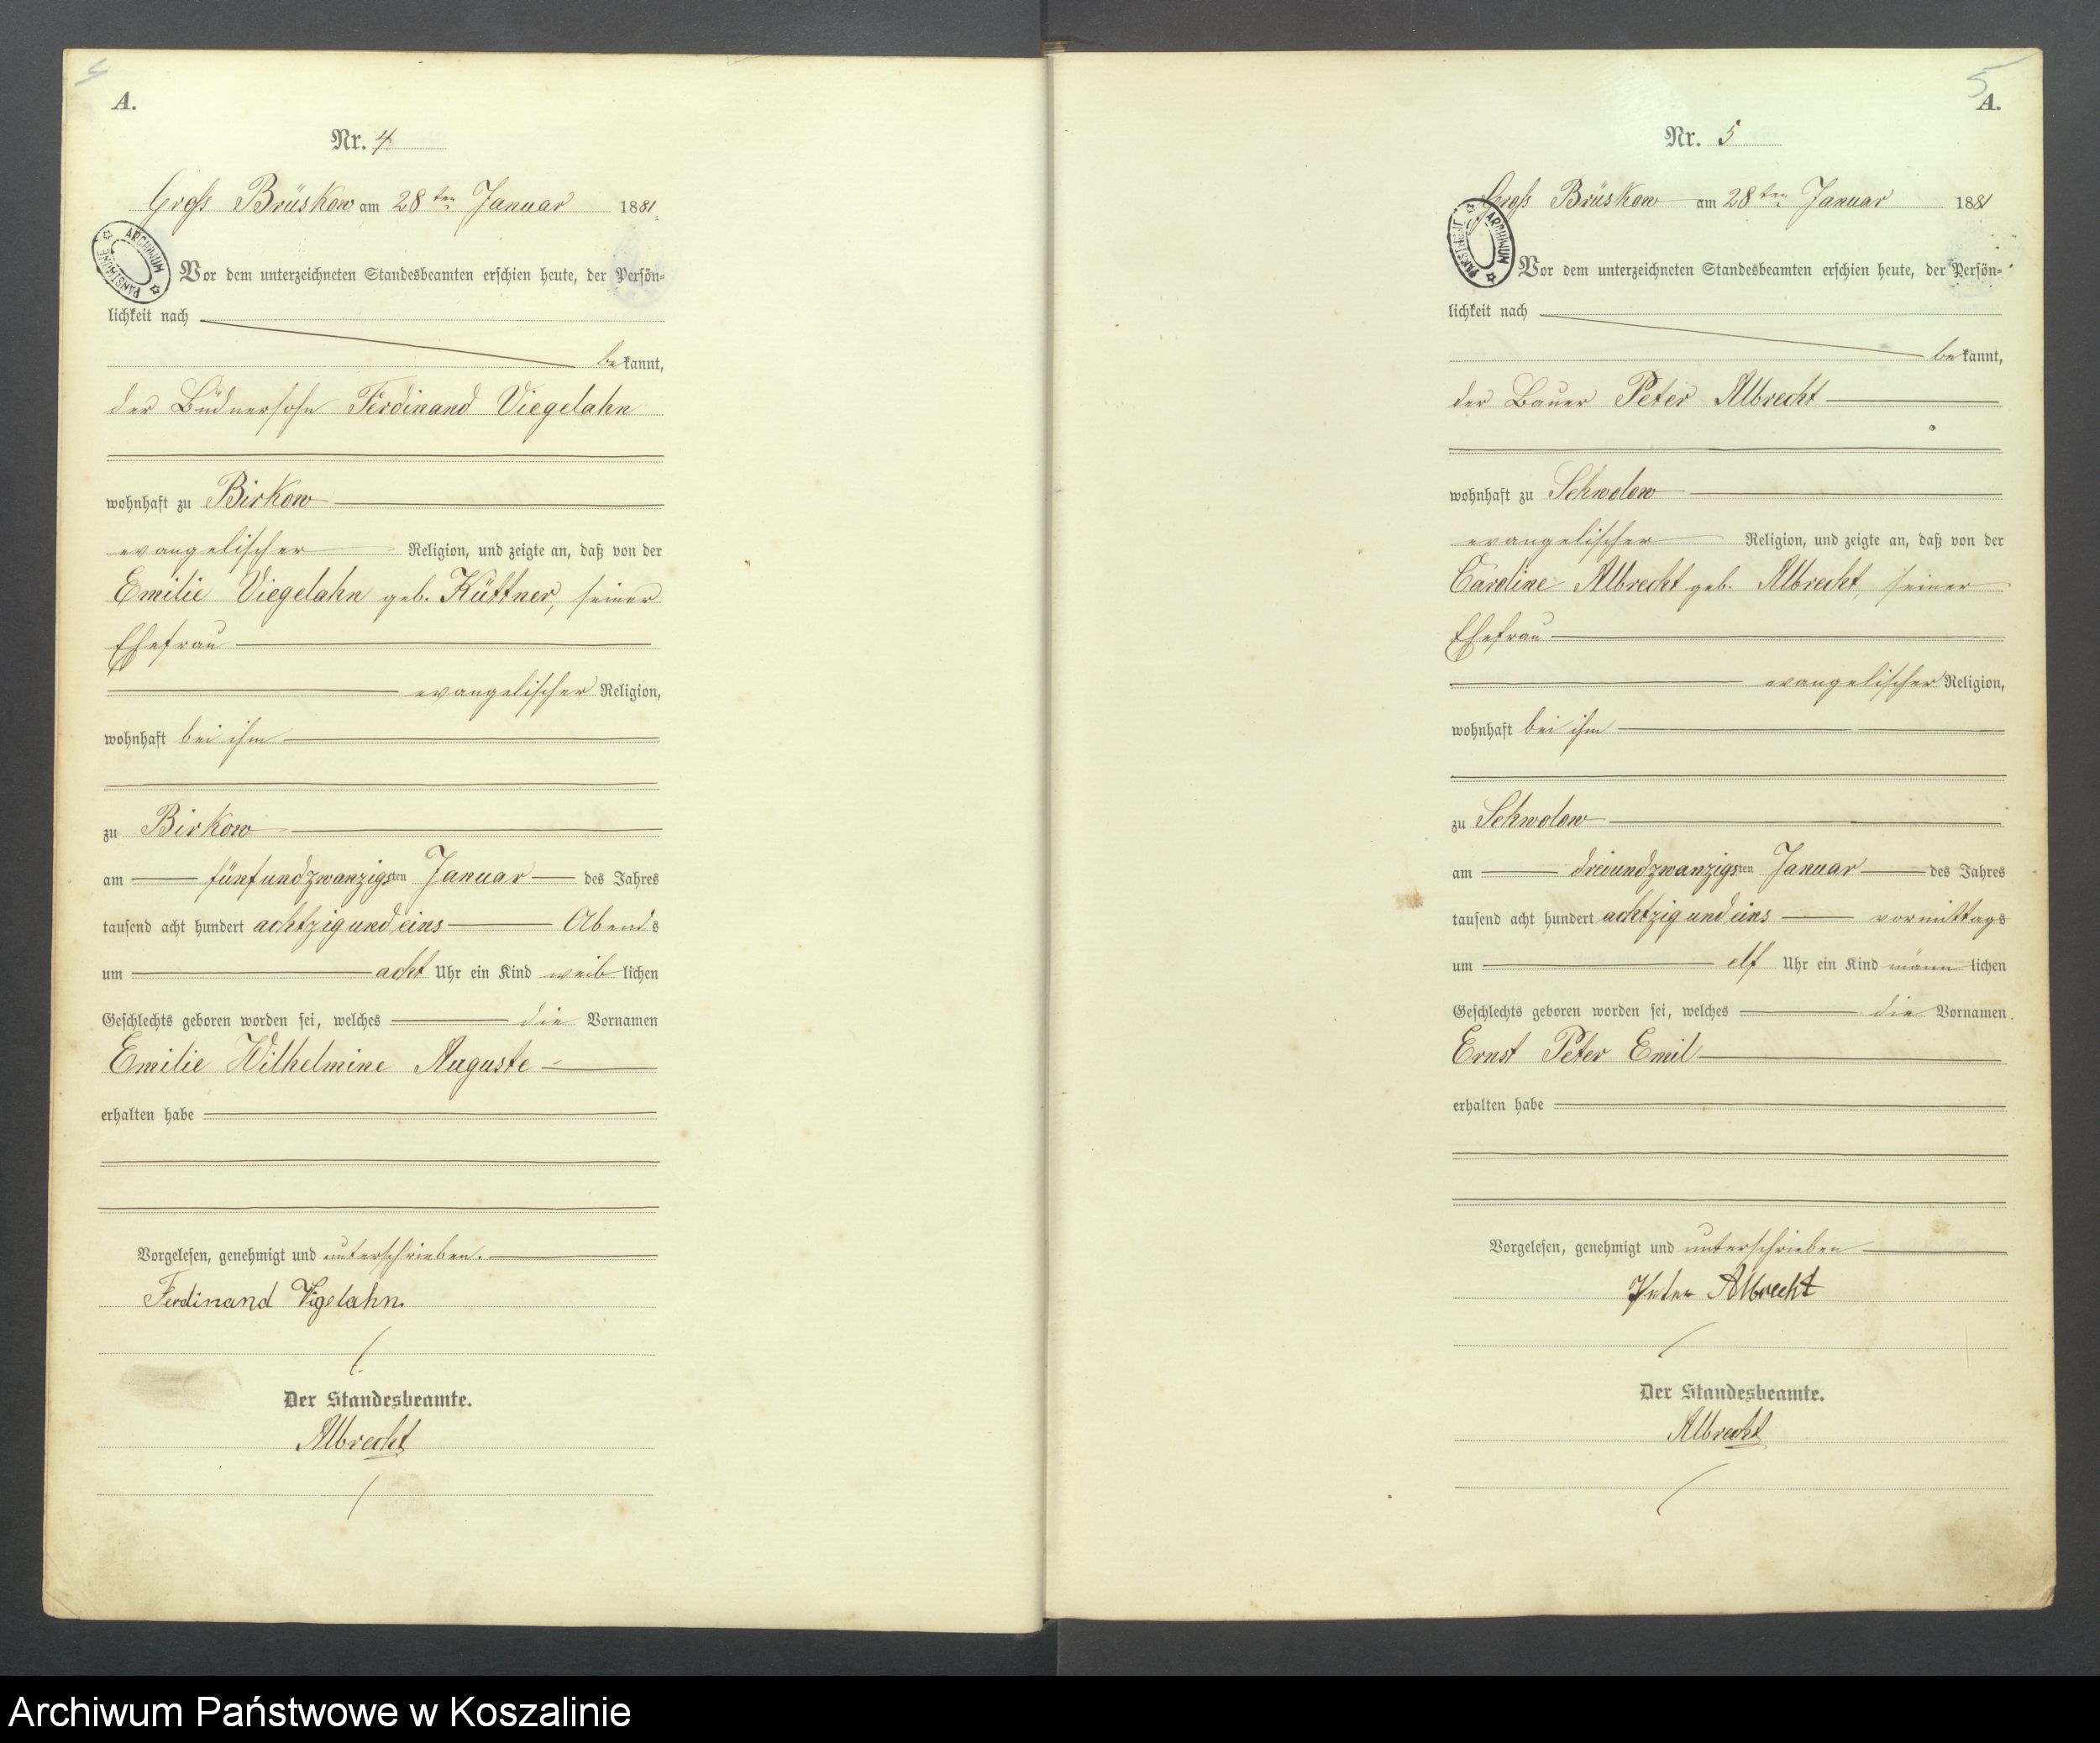 4
A.
Nr. 4
Groß Brüskow am 28ten Januar 1881
PAŃSTWOWE ARCHIWUM
Vor dem unterzeichneten Standesbeamten erschien heute, der Persön-
lichkeit nach
bekannt,
der Büdnersohn Ferdinand Viegelahn
wohnhaft zu Birkow
evangelischer Religion, und zeigte an, daß von der
Emilie Viegelahn geb. Küttner, seiner
Ehefrau
evangelischer Religion,
wohnhaft bei ihm
zu Birkow
am fünfundzwanzigsten Januar des Jahres
tausend acht hundert achtzig und eins Abends
um acht Uhr ein Kind weiblichen
Geschlechts geboren worden sei, welches die Vornamen
Emilie Wilhelmine Auguste
erhalten habe
Vorgelesen, genehmigt und unterschrieben.
Ferdinand Vigelahn.
Der Standesbeamte.
Albrecht
5
A.
Nr. 5
Groß Brüskow am 28ten Januar 1881
PAŃSTWOWE ARCHIWUM
Vor dem unterzeichneten Standesbeamten erschien heute, der Persön-
lichkeit nach
bekannt,
der Bauer Peter Albrecht
wohnhaft zu Schwolow
evangelischer Religion, und zeigte an, daß von der
Caroline Albrecht geb. Albrecht, seiner
Ehefrau
evangelischer Religion,
wohnhaft bei ihm
zu Schwolow
am dreiundzwanzigsten Januar des Jahres
tausend acht hundert achtzig und eins vormittags
um elf Uhr ein Kind männlichen
Geschlechts geboren worden sei, welches die Vornamen
Ernst Peter Emil
erhalten habe
Vorgelesen, genehmigt und unterschrieben
Peter Albrecht
Der Standesbeamte.
Albrecht
Archiwum Państwowe w Koszalinie